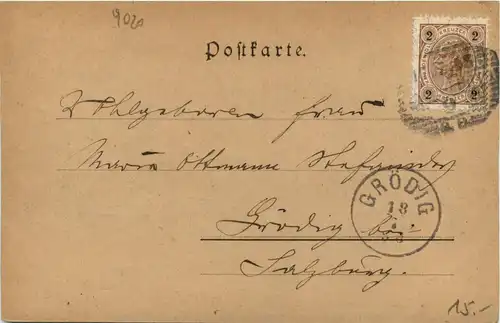 902
2 2
2 2
Postkarte.
Wohlgeboren Frau
Maria Ottmann
GRÖDIG
18
Grödig bei
Salzburg.
15.-